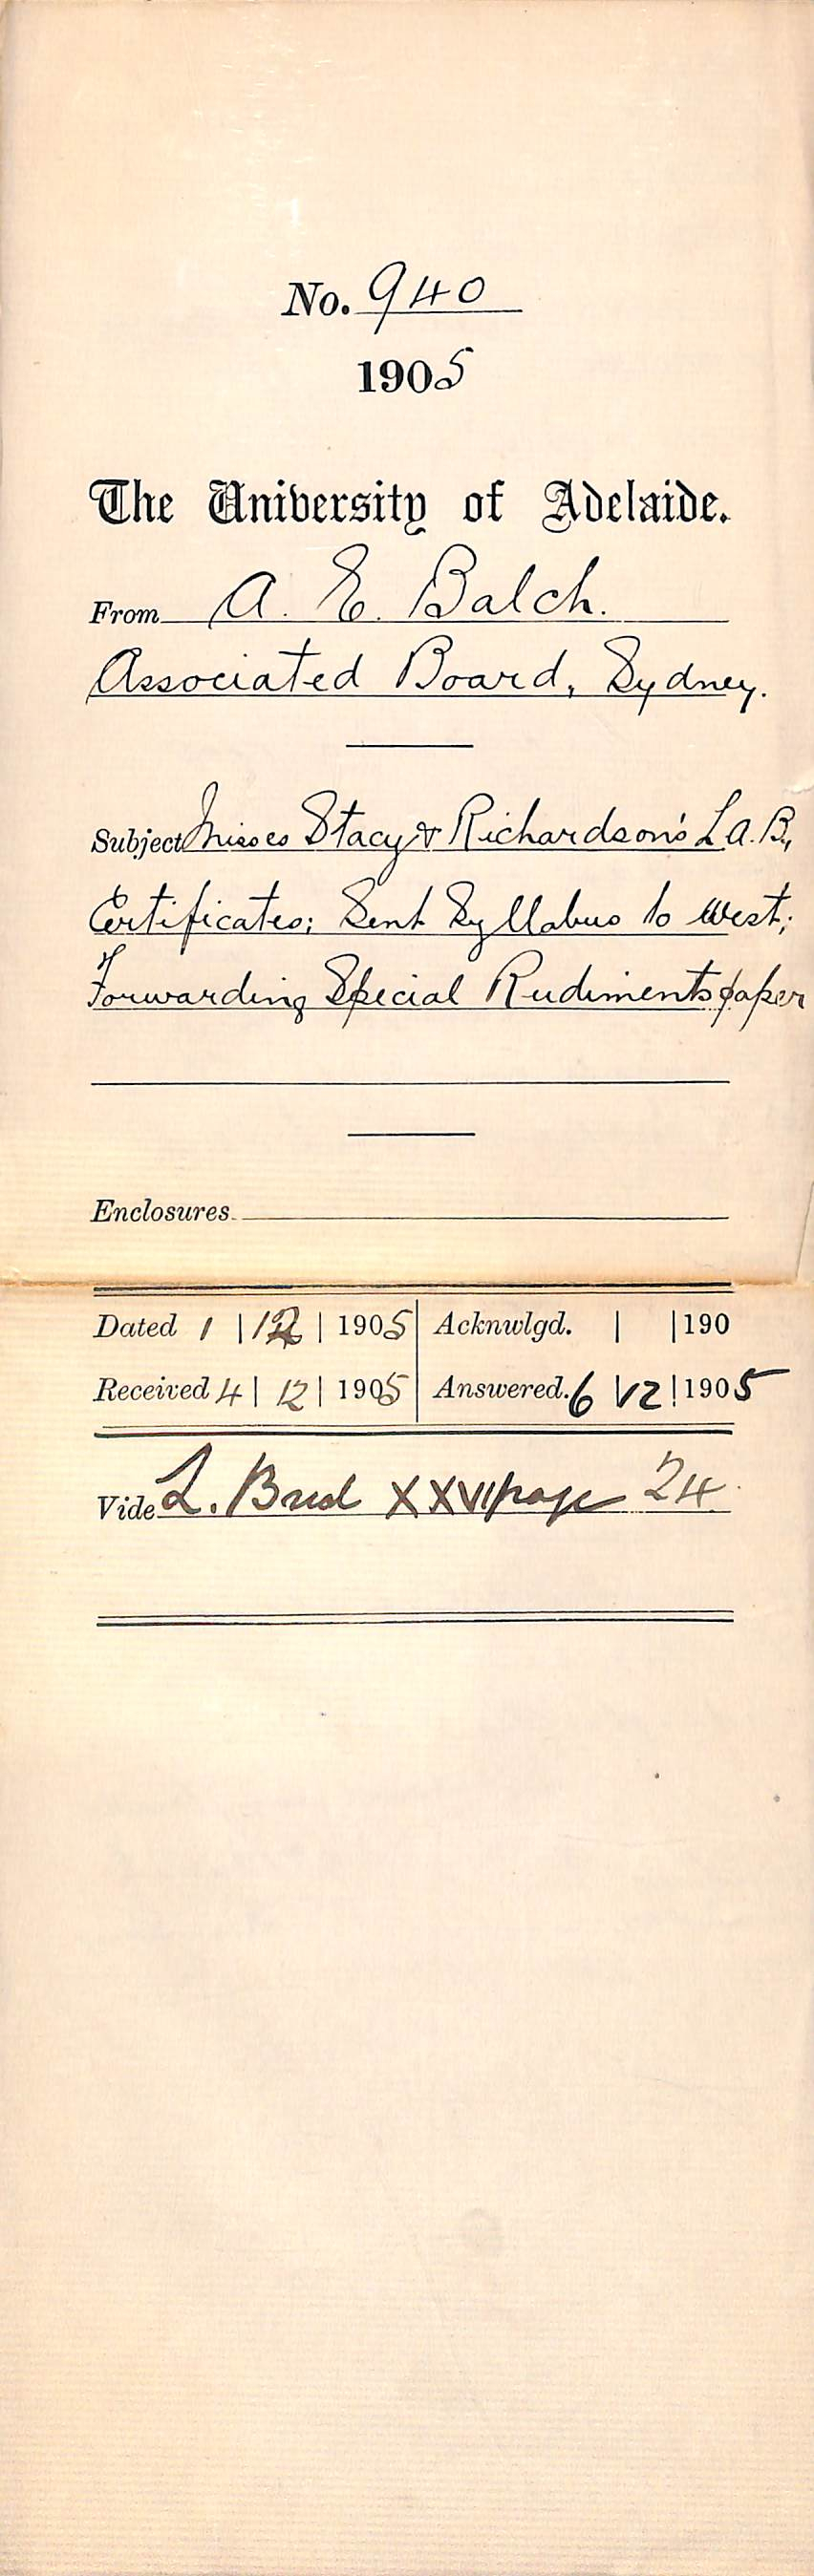 No. 940
1905
The University of Adelaide.
From A. E. Balch.
Associated Board, Sydney.
Subject Misses Stacy & Richardson's L.A.B.,
Certificates; Sent Syllabus to West;
Forwarding Special Rudiments paper
Enclosures
Dated 1 | 12 | 1905 | Acknwlgd. | | 190
Received 4 | 12 | 1905 | Answered. 6 | 12 | 1905
Vide L. XXVI page 24